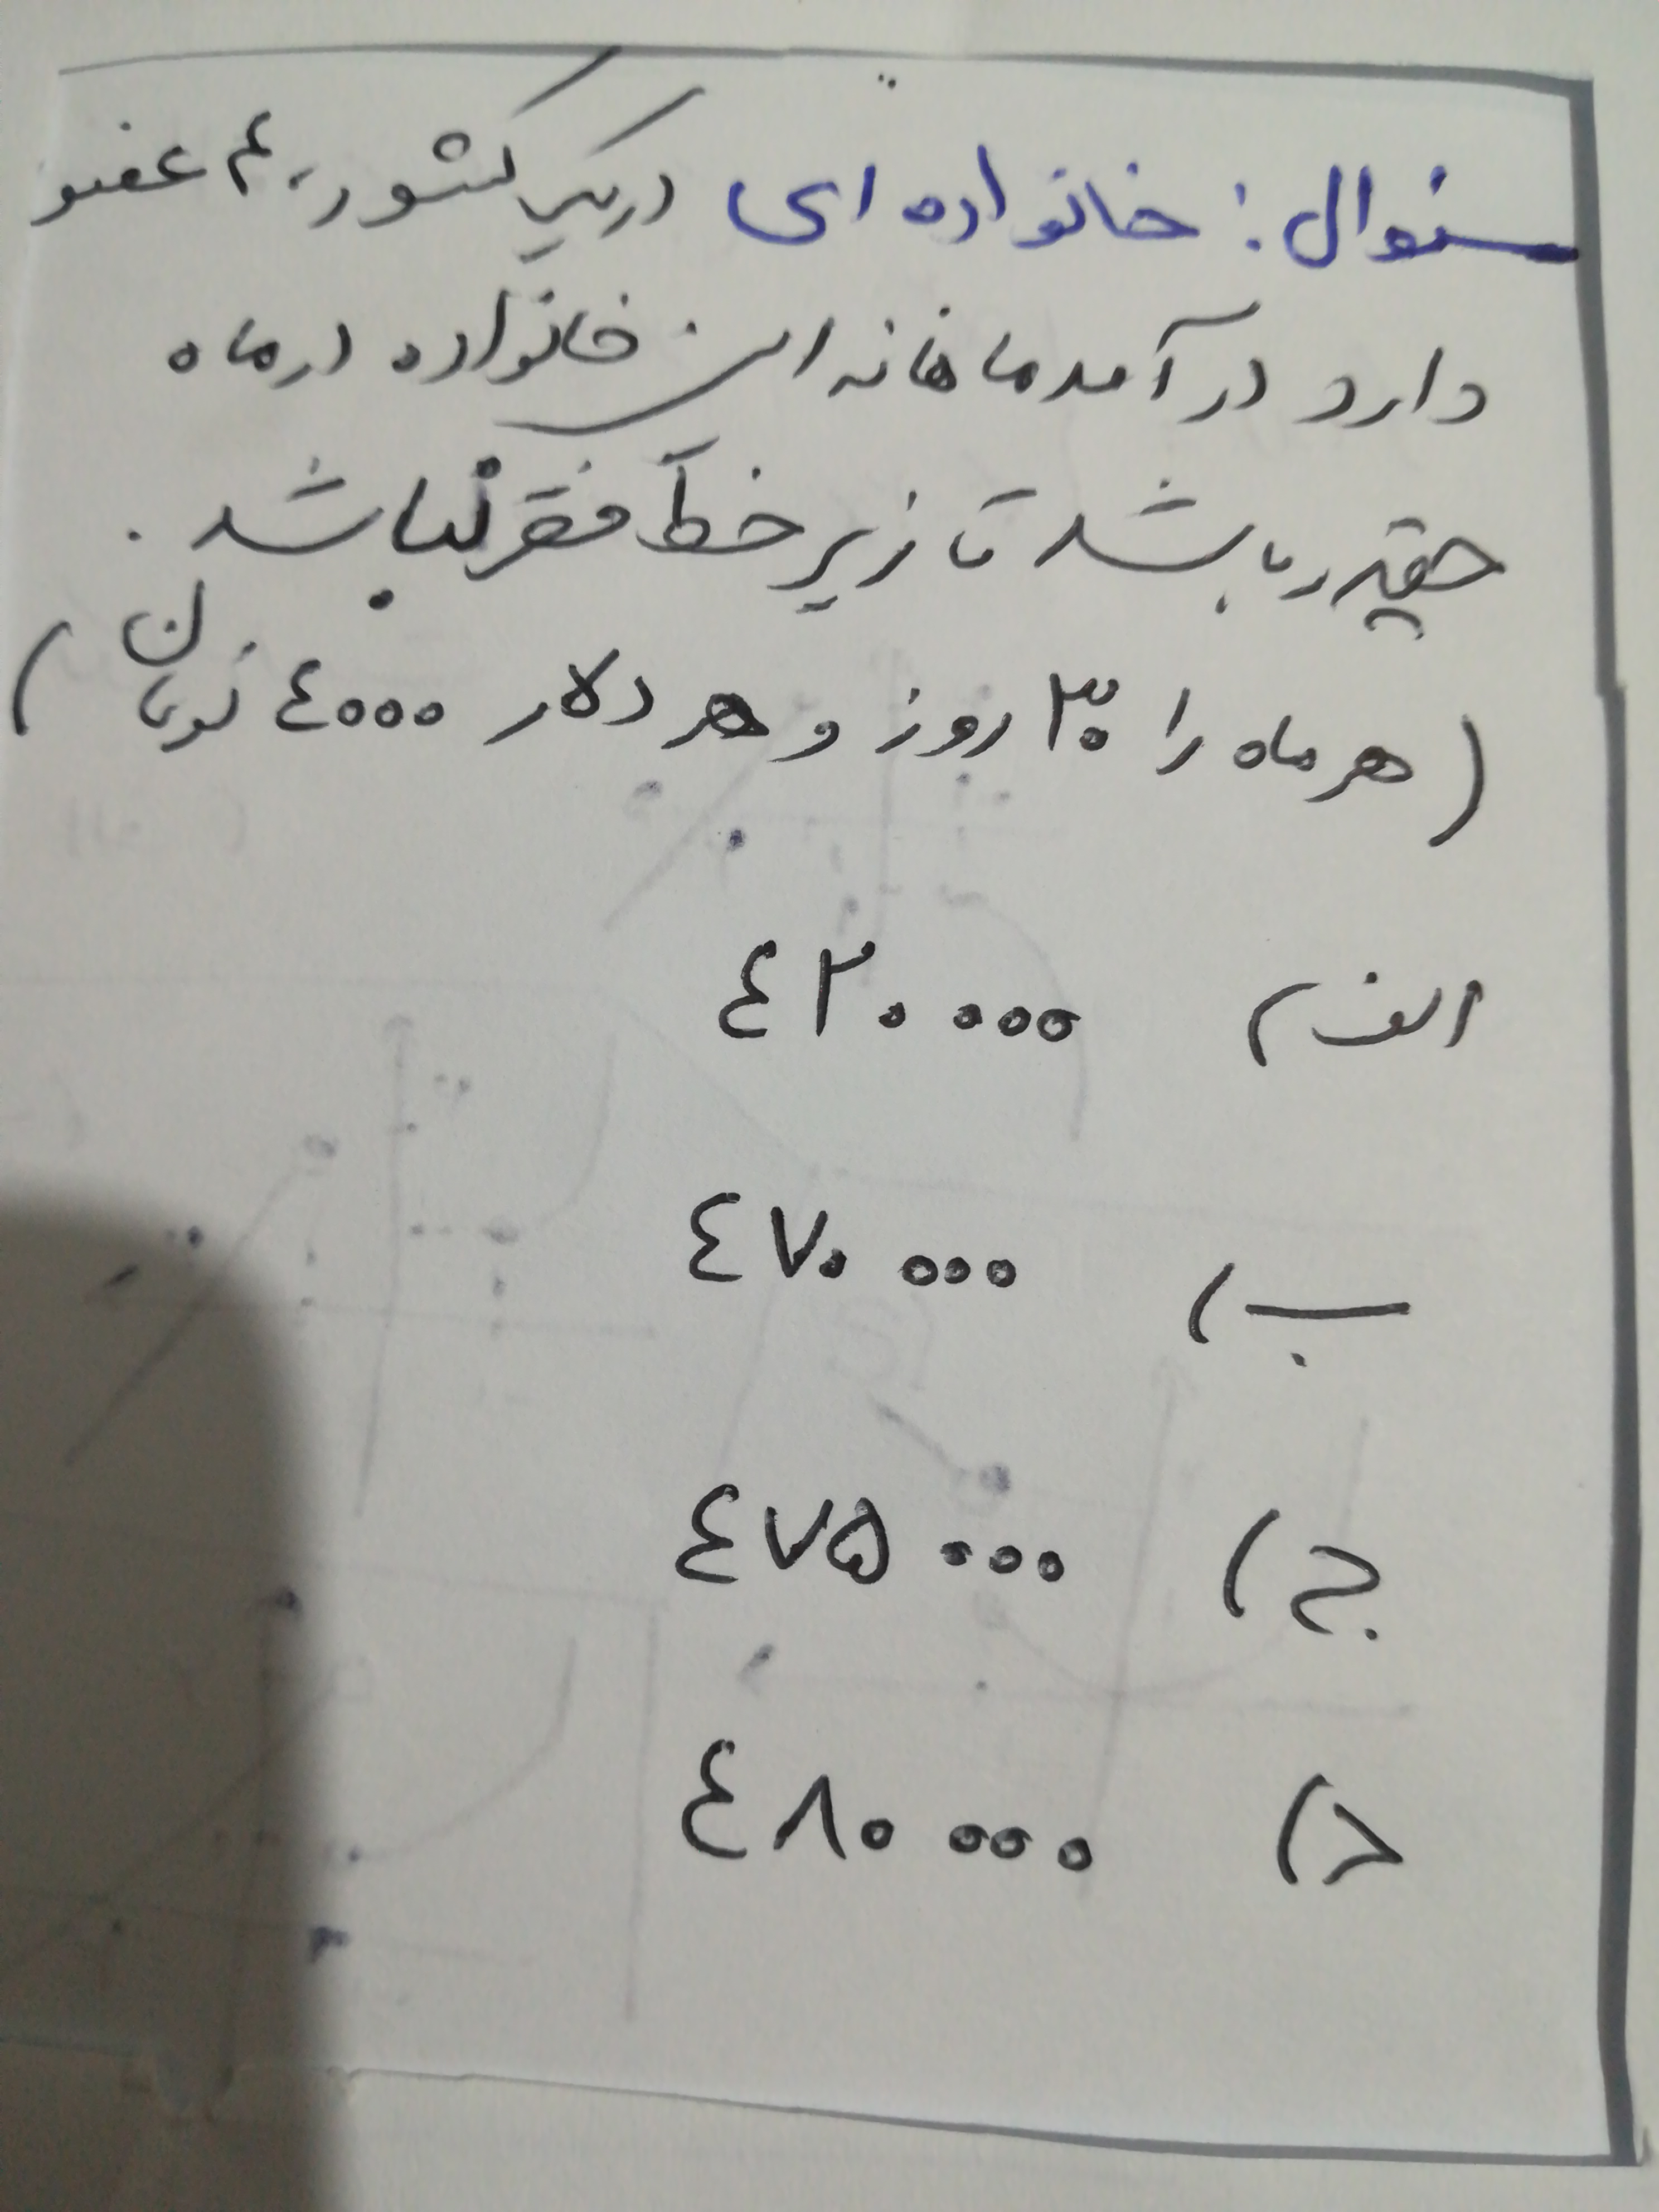 سئوال: خانواده ای در یک کشور، ۴ عضو
دارد در آمد ماهانه این خانواده در ماه
چقدر باشد تا زیر خط فقر نباشد.
(هر ماه را ۳۰ روز و هر دلار ٤۰۰۰ تومان)
الف) ٤۲۰۰۰۰۰
ب) ٤۷۰۰۰۰
ج) ٤۷۵۰۰۰
د) ٤۸۰۰۰۰